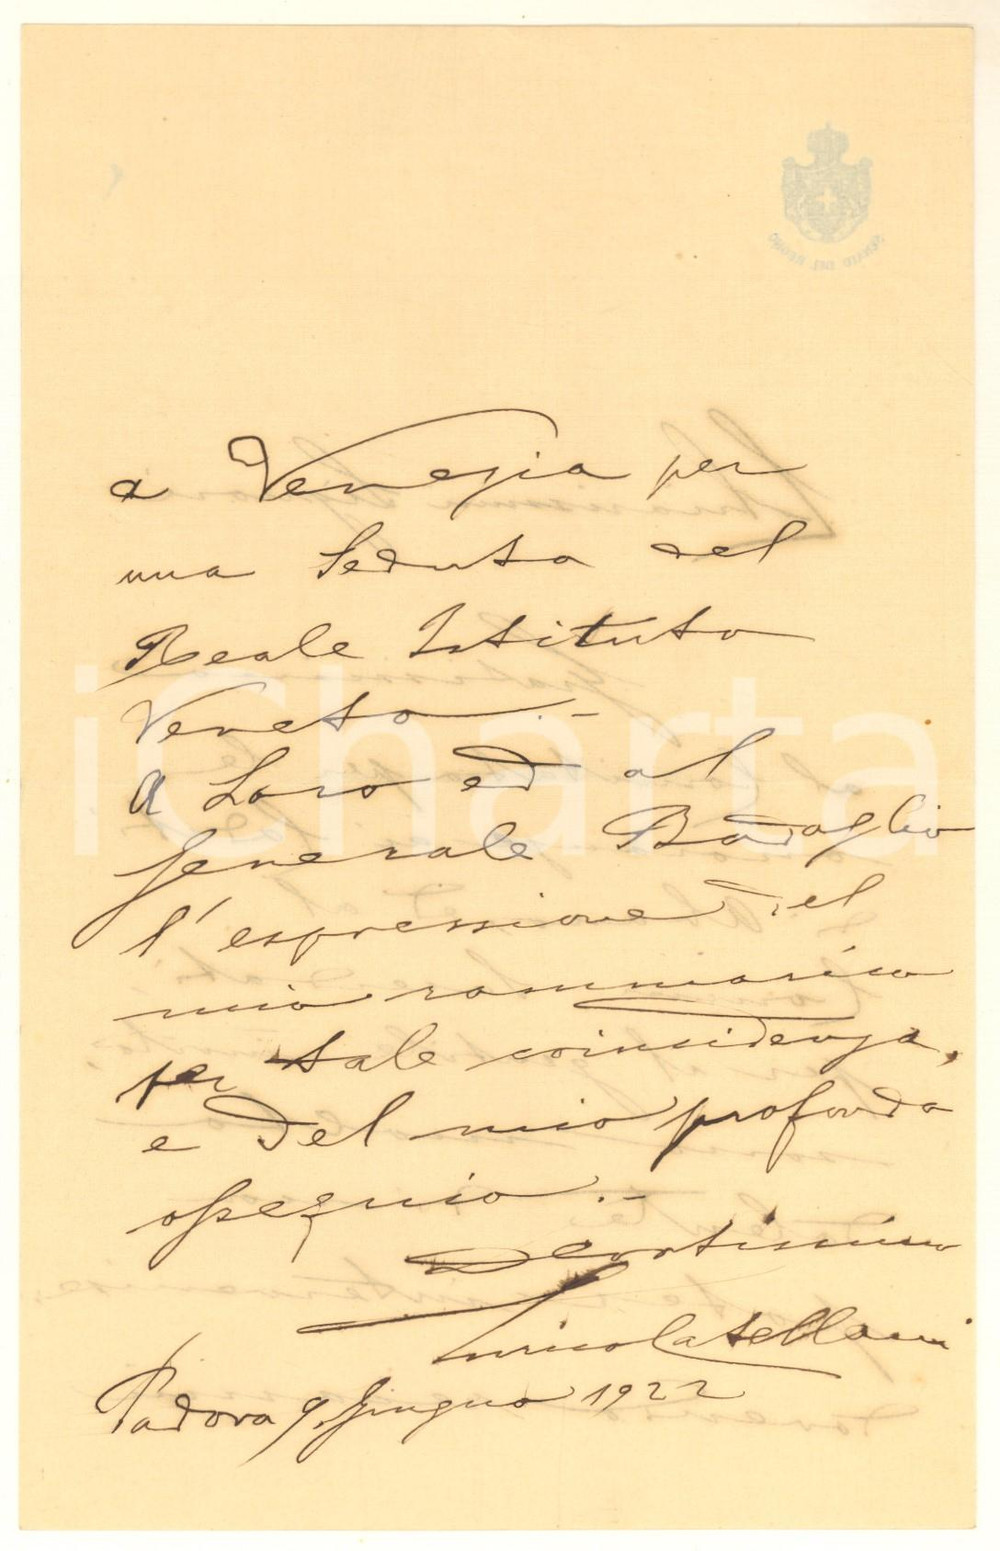 a Venezia per
una Seduta del
Reale Istituto
Veneto.-
A Loro ed al
Generale Badoglio
l'espressione del
mio rammarico
per tale coincidenza,
e del mio profondo
ossequio.-
Devotissimo
Enrico Catellani
Padova 9 Giugno 1922
SENATO DEL REGNO
iCharta